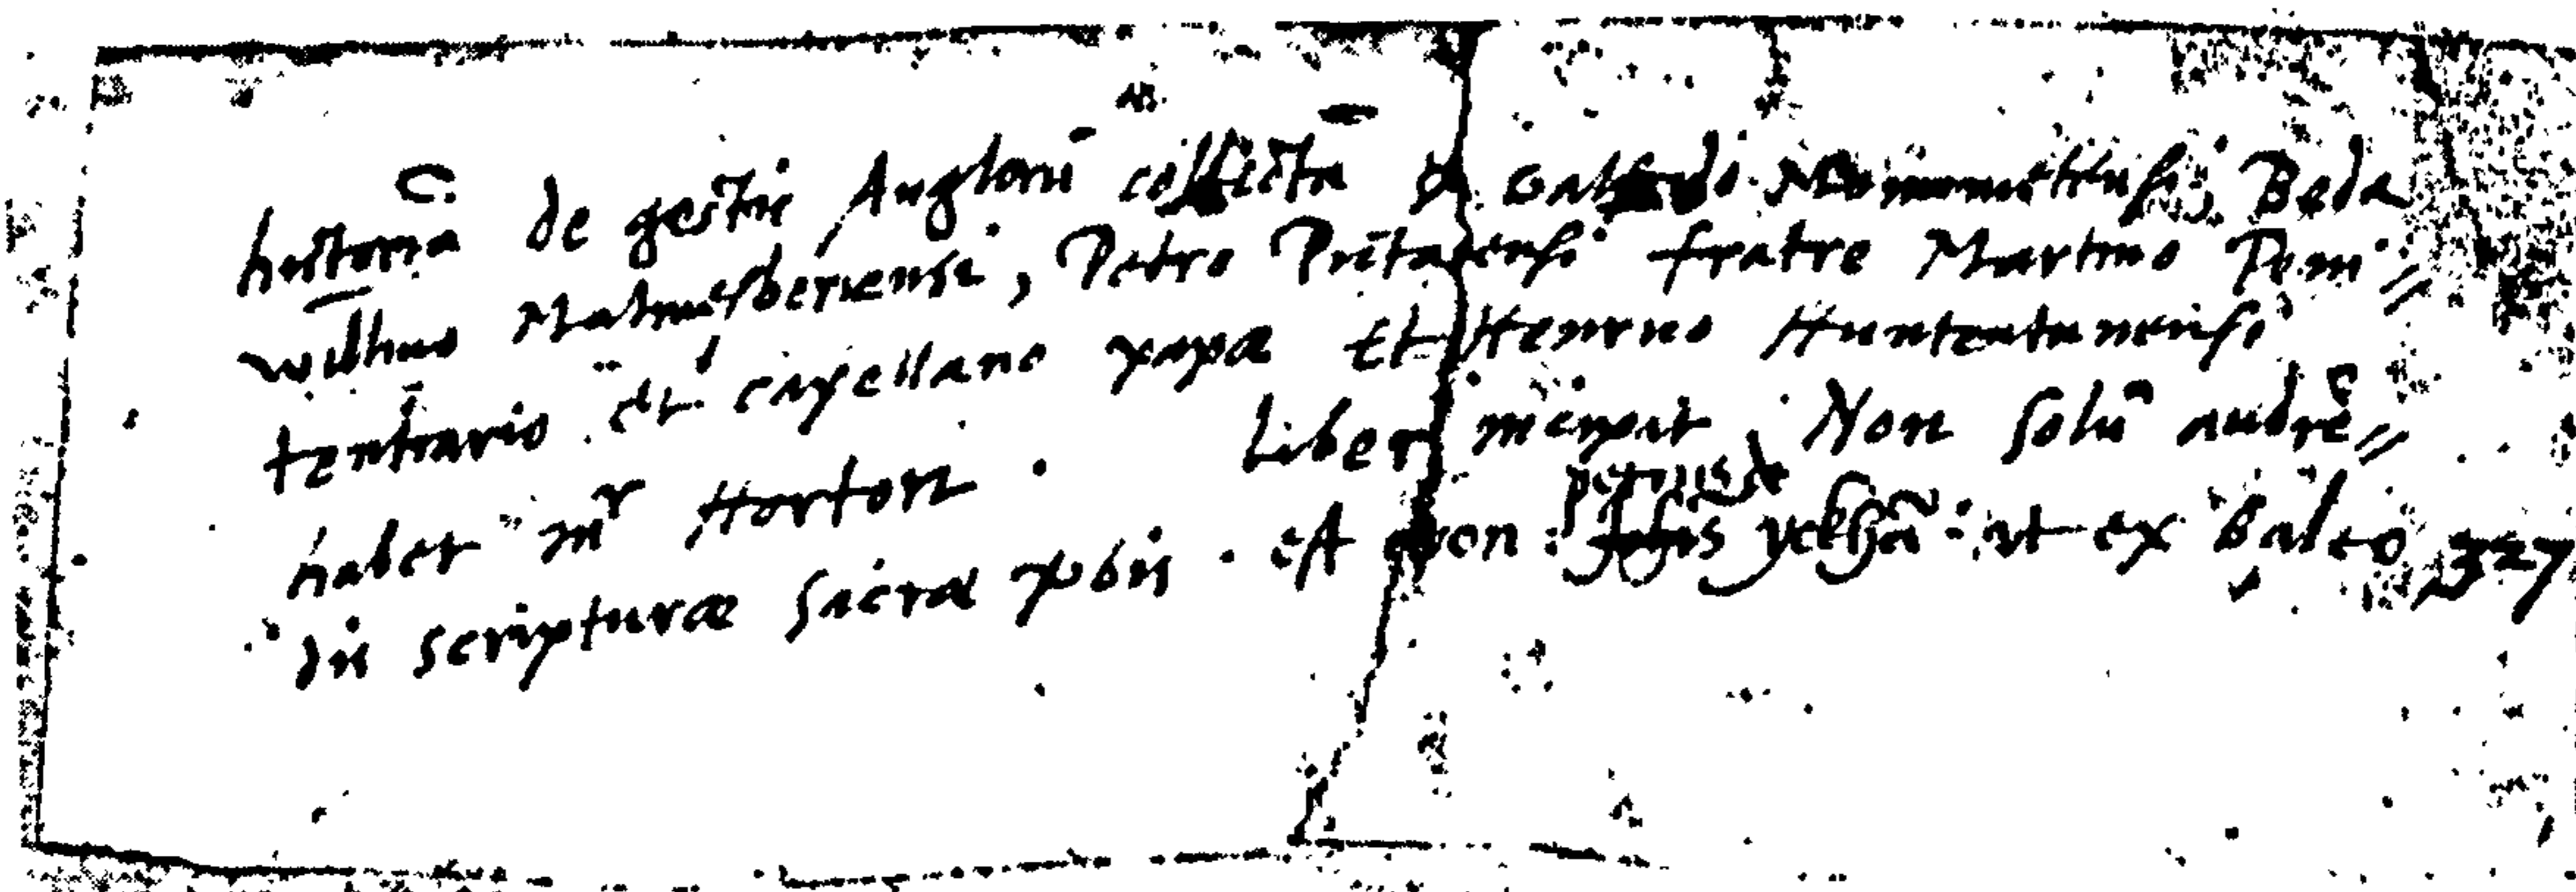 historia de gestis Anglorū collecta ex Galfredo Monumetensi, Beda
Willmo Malmesberiensi, Petro Pictavensi fratre Martino Peni⸗
tentiario et capellano papæ Et Henrico Huntentunensi
habet mr Horton. Liber incipit. Non solū audiē⸗
dis scripturæ sacræ verbis. est petrus de yckhā: ut ex Baleo 327